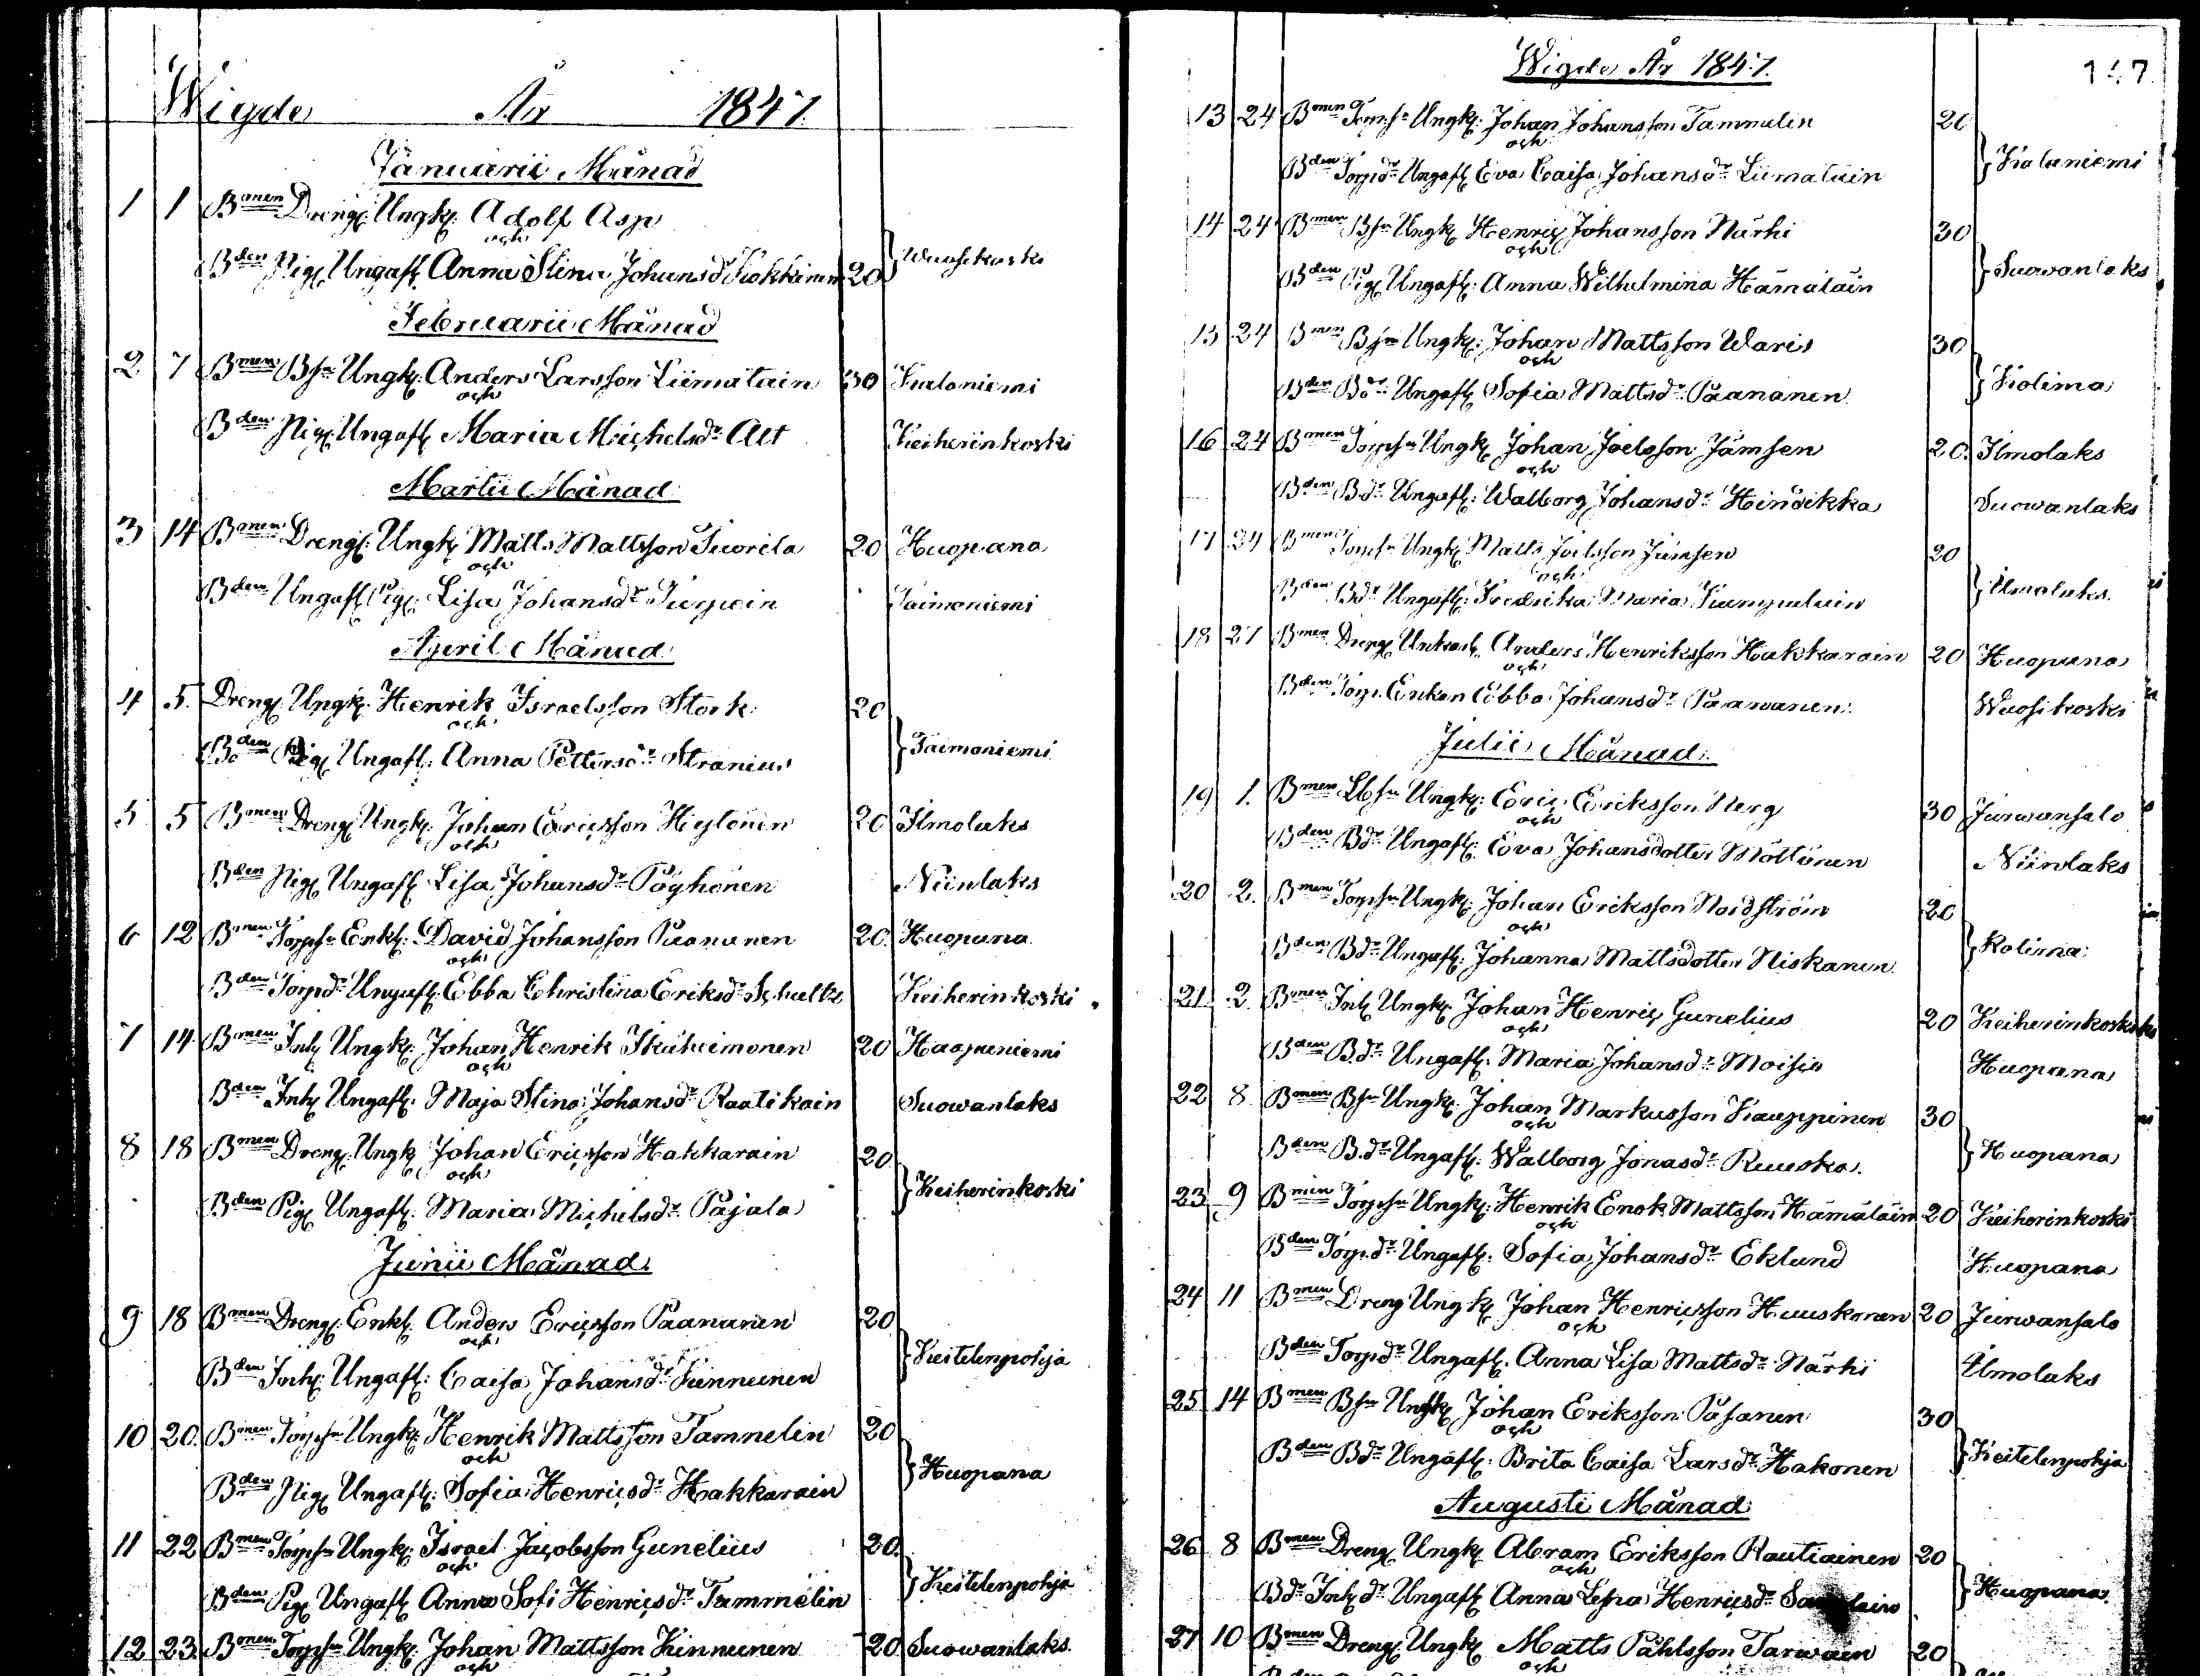 Wigde År 1847.
Januarii Månad
1 1 Bmen Dreng Ungk: Adolf Asp
och
Bden Pig Ungafl Anna Stina Johansdr Kokkinen 20 } Wuosikoski
Februarii Månad
2 7 Bmen Bsn Ungk: Anders Larsson Liimatain 30 Kalaniemi
och
Bden Pig Ungafl Maria Michelsdr Alt Keiherinkoski
Martii Månad
3 14 Bmen Dreng: Ungk Matts Mattsson Tuorila 20 Huopana
och
Bden Ungafl Pig: Lisa Johansdr Turpein Taimoniemi
April Månad
4 5. Dreng Ungk: Henrik Israelsson Stork 20
och
Bden Pig Ungafl: Anna Pettersdr Stranius } Taimoniemi
5 5 Bmen Dreng Ungk: Johan Ericsson Hytönen 20 Ilmolaks
och
Bden Pig Ungafl Lisa Johansdr Pöyhönen Niinlaks
6 12 Bmen Torpsn Enkl: David Johansson Paananen 20. Huopana
och
Bden Torpdr Ungafl: Ebba Christina Eriksdr Schultz Keiherinkoski
7 14 Bmen Inh Ungk: Johan Henrik Ikäheimonen 20 Haapaniemi
och
Bden Inh Ungafl: Maja Stina Johansdr Raatikain Suowanlaks
8 18 Bmen Dreng Ungk Johan Ericsson Hakkarain 20
och
Bden Pig Ungafl: Maria Michelsdr Pajala } Keiherinkoski
Junii Månad
9 18 Bmen Dreng Enkl Anders Ericsson Paananen 20
och
Bden Inh: Ungafl: Caisa Johansdr Kinnunen } Keitelenpohja
10 20. Bmen Torpsn Ungk: Henrik Mattsson Tammelin 20
och
Bden Pig Ungafl: Sofia Henricsdr Hakkarain } Huopana
11 22 Bmen Torpsn Ungk: Israel Jacobsson Gunelius 20.
och
Bden Pig Ungafl Anna Sofi Henricsdr Tammelin } Keitelenpohja
12 23. Bmen Torpsn Ungk: Johan Mattsson Kinnunen 20 Suowanlaks
och
Wigde År 1847. 147
13 24 Bmen Torpsn Ungk: Johan Johansson Tammelin 20
och
Bden Torpdr Ungafl Eva Caisa Johansdr Liimatain } Kalaniemi
14 24 Bmen Bsn Ungk Henric Johansson Närhi 30
och
Bden Pig Ungafl: Anna Wilhelmina Hämäläin } Suowanlaks
15 24 Bmen Bsn Ungk: Johan Mattsson Waris 30
och
Bden Bdr Ungafl Sofia Mattsdr Paananen } Kolima
16 24 Bmen Torpsn Ungk Johan Joelsson Jämsen 20. Ilmolaks
och
Bden Bdr Ungafl: Walborg Johansdr Hindrikka Suowanlaks
17 24 Bmen Torpsn Ungk Matts Joelsson Jämsen 20
och
Bden Bdr Ungafl: Fredrika Maria Kumpulain } Ilmolaks
18 27 Bmen Dreng Anders Henriksson Hakkarain 20 Huopana
och
Bden Torp. Enkan Ebba Johansdr Paawanen Wuosikoski
Julii Månad
19 1. Bmen Ungk: Eric Eriksson Nerg 30 Jurwansalo
och
Bden Bdr Ungafl: Eva Johansdotter Möttönen Niinlaks
20 2. Bmen Torpsn Ungk: Johan Eriksson Nordström 20
och
Bden Bdr Ungafl: Johanna Mattsdotter Niskanen } Kolima
21 2. Bmen Inh Ungk: Johan Henric Gunelius 20 Keiherinkoski
och
Bden Bdr Ungafl: Maria Johansdr Moisio Huopana
22 8 Bmen Bsn Ungk: Johan Markusson Kauppinen 30
och
Bden Bdr Ungafl: Walborg Jonasdr Ruuska. } Huopana
23 9 Bmen Torpsn Ungk: Henrik Enok Mattsson Hämäläin 20 Keiherinkoski
och
Bden Torpdr Ungafl: Sofia Johansdr Eklund Huopana
24 11 Bmen Dreng Ungk Johan Henricsson Huuskonen 20 Jurwansalo
och
Bden Torpdr Ungafl. Anna Lisa Mattsdr Närhi Ilmolaks
25 14 Bmen Bsn Ungk Johan Eriksson Pasanen 30
och
Bden Bdr Ungafl: Brita Caisa Larsdr Hakonen } Keitelenpohja
Augusti Månad
26 8 Bmen Dreng Ungk Abram Eriksson Rautiainen 20
och
Bdr Inhdr Ungafl Anna Lisa Henricsdr } Huopana
27 10 Bmen Dreng Ungk Matts Påhlsson Tarwain 20
och